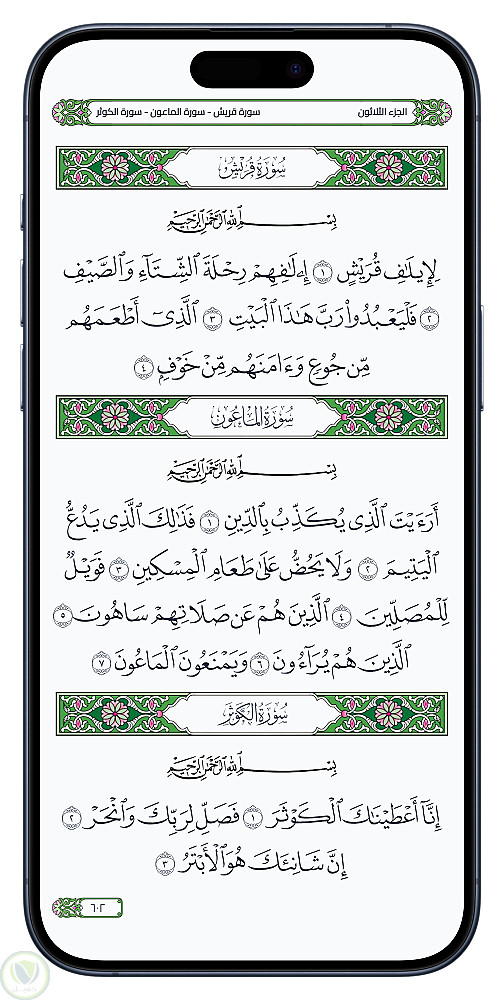 الجزء الثلاثون
سورة قريش - سورة الماعون - سورة الكوثر
سُورَةُ قُرَيْشٍ
بِسْمِ ٱللَّهِ ٱلرَّحْمَٰنِ ٱلرَّحِيمِ
لِإِيلَٰفِ قُرَيْشٍ ١ إِۦلَٰفِهِمْ رِحْلَةَ ٱلشِّتَآءِ وَٱلصَّيْفِ
٢ فَلْيَعْبُدُوا۟ رَبَّ هَٰذَا ٱلْبَيْتِ ٣ ٱلَّذِىٓ أَطْعَمَهُم
مِّن جُوعٍ وَءَامَنَهُم مِّنْ خَوْفٍۭ ٤
سُورَةُ المَاعُونِ
بِسْمِ ٱللَّهِ ٱلرَّحْمَٰنِ ٱلرَّحِيمِ
أَرَءَيْتَ ٱلَّذِى يُكَذِّبُ بِٱلدِّينِ ١ فَذَٰلِكَ ٱلَّذِى يَدُعُّ
ٱلْيَتِيمَ ٢ وَلَا يَحُضُّ عَلَىٰ طَعَامِ ٱلْمِسْكِينِ ٣ فَوَيْلٌ
لِّلْمُصَلِّينَ ٤ ٱلَّذِينَ هُمْ عَن صَلَاتِهِمْ سَاهُونَ ٥
ٱلَّذِينَ هُمْ يُرَآءُونَ ٦ وَيَمْنَعُونَ ٱلْمَاعُونَ ٧
سُورَةُ الكَوْثَرِ
بِسْمِ ٱللَّهِ ٱلرَّحْمَٰنِ ٱلرَّحِيمِ
إِنَّآ أَعْطَيْنَٰكَ ٱلْكَوْثَرَ ١ فَصَلِّ لِرَبِّكَ وَٱنْحَرْ ٢
إِنَّ شَانِئَكَ هُوَ ٱلْأَبْتَرُ ٣
٦٠٢